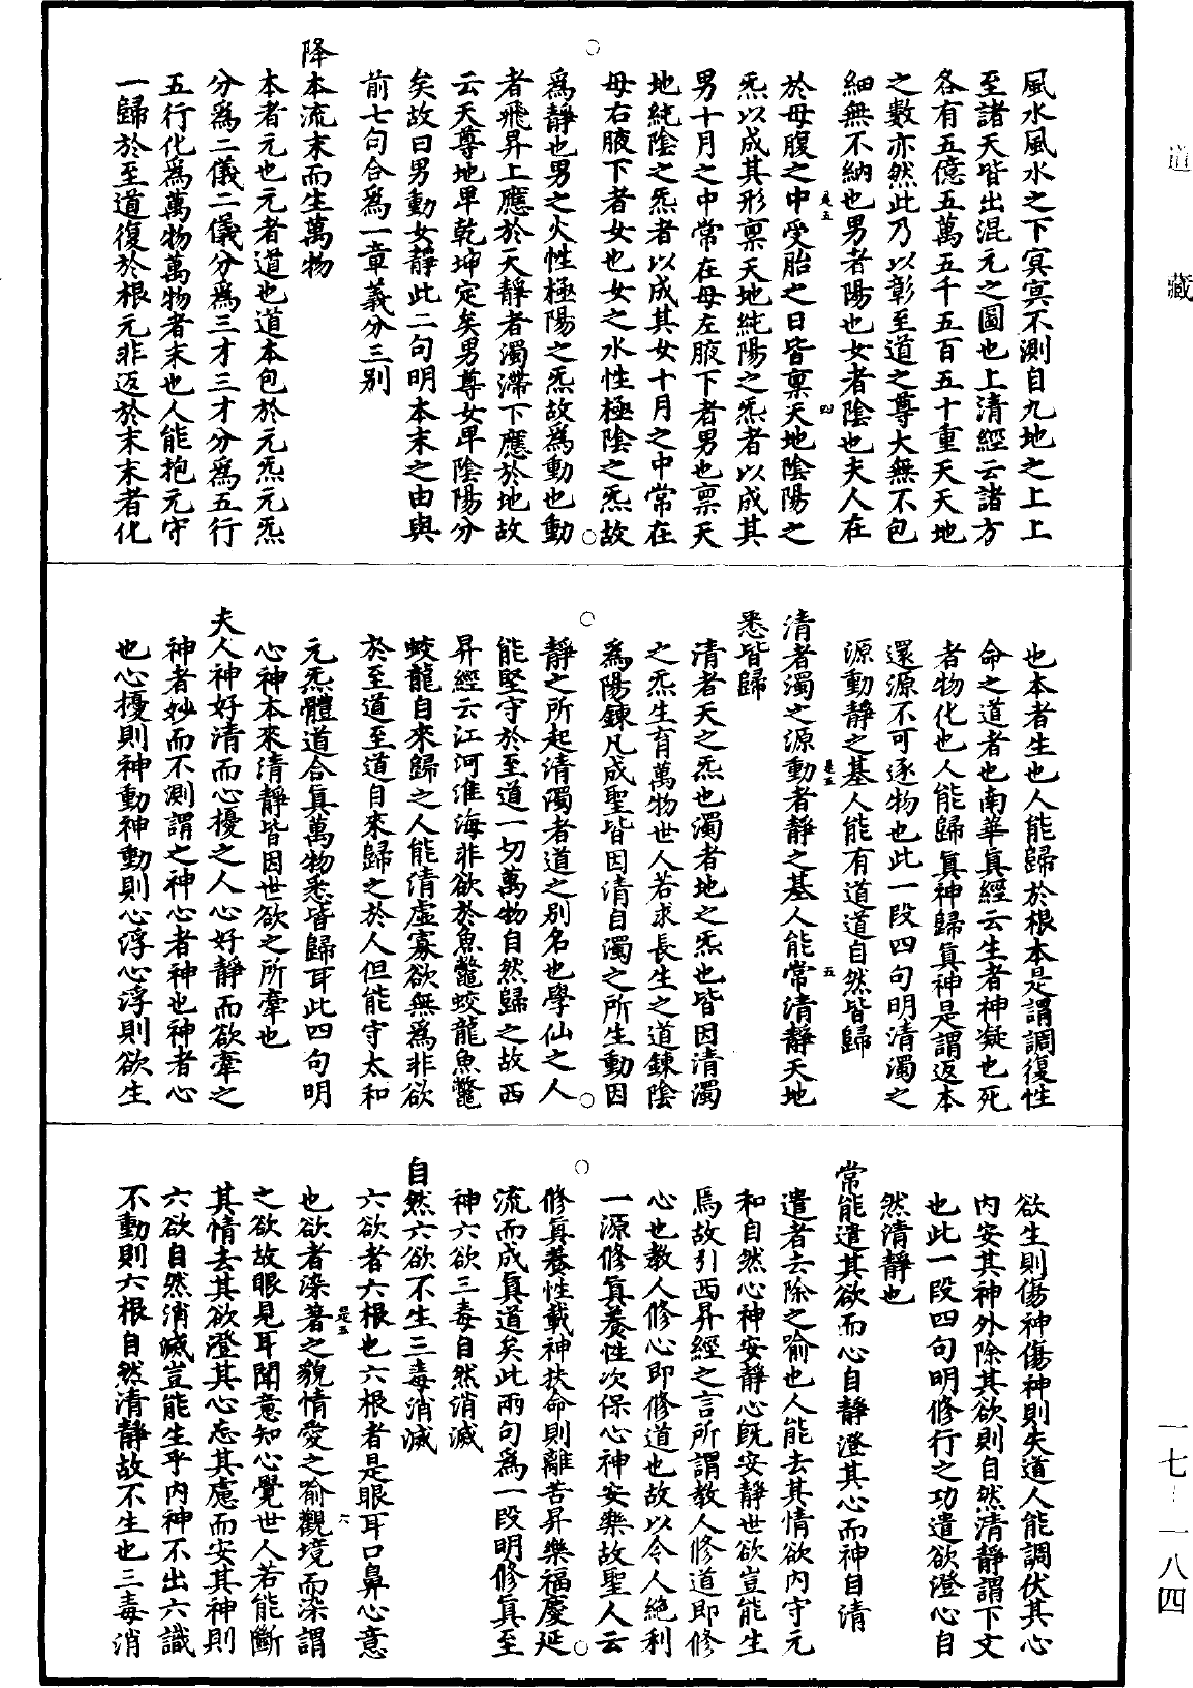 道藏
風水風水之下冥冥不測自九地之上上
至諸天皆出混元之圖也上清經云諸方
各有五億五萬五千五百五十重天天地
之數亦然此乃以彰至道之尊大無不包
細無不納也男者陽也女者陰也夫人在
於母腹之中受胎之日皆禀天地陰陽之
炁以成其形禀天地純陽之炁者以成其
男十月之中常在母左腋下者男也禀天
地純陰之炁者以成其女十月之中常在
母右腋下者女也女之水性極陰之炁故
爲靜也男之火性極陽之炁故爲動也動
者飛昇上應於天靜者濁滯下應於地故
云天尊地卑乾坤定矣男尊女卑陰陽分
矣故曰男動女靜此二句明本末之由與
前七句合爲一章義分三别
降本流末而生萬物
本者元也元者道也道本包於元炁元炁
分爲二儀二儀分爲三才三才分爲五行
五行化爲萬物萬物者末也人能抱元守
一歸於至道復於根元非返於末末者化
也本者生也人能歸於根本是謂調復性
命之道者也南華真經云生者神凝也死
者物化也人能歸真神歸真神是謂返本
還源不可逐物也此一段四句明清濁之
源動靜之基人能有道道自然皆歸
清者濁之源動者靜之基人能常清靜天地
悉皆歸
清者天之炁也濁者地之炁也皆因清濁
之炁生育萬物世人若求長生之道鍊陰
爲陽鍊凡成聖皆因清自濁之所生動因
靜之所起清濁者道之别名也學仙之人
能堅守於至道一切萬物自然歸之故西
昇經云江河淮海非欲於魚鼈蛟龍魚鼈
蛟龍自來歸之人能清虛寡欲無爲非欲
於至道至道自來歸之於人但能守太和
元炁體道合真萬物悉皆歸耳此四句明
心神本來清靜皆因世欲之所牽也
夫人神好清而心擾之人心好靜而欲牽之
神者妙而不測謂之神心者神也神者心
也心擾則神動神動則心浮心浮則欲生
欲生則傷神傷神則失道人能調伏其心
内安其神外除其欲則自然清靜謂下文
也此一段四句明修行之功遣欲澄心自
然清靜也
常能遣其欲而心自靜澄其心而神自清
遣者去除之喻也人能去其情欲内守元
和自然心神安靜心既安靜世欲豈能生
焉故引西昇經之言所謂教人修道即修
心也教人修心即修道也故以令人絶利
一源修真養性次保心神安樂故聖人云
修真養性載神扶命則離苦昇樂福慶延
流而成真道矣此兩句爲一段明修真至
神六欲三毒自然消滅
自然六欲不生三毒消滅
六欲者六根也六根者是眼耳口鼻心意
也欲者染著之貌情愛之喻觀境而染謂
之欲故眼見耳聞意知心覺世人若能斷
其情去其欲澄其心忘其慮而安其神則
六欲自然消滅豈能生乎内神不出六識
不動則六根自然清靜故不生也三毒消
一七－一八四